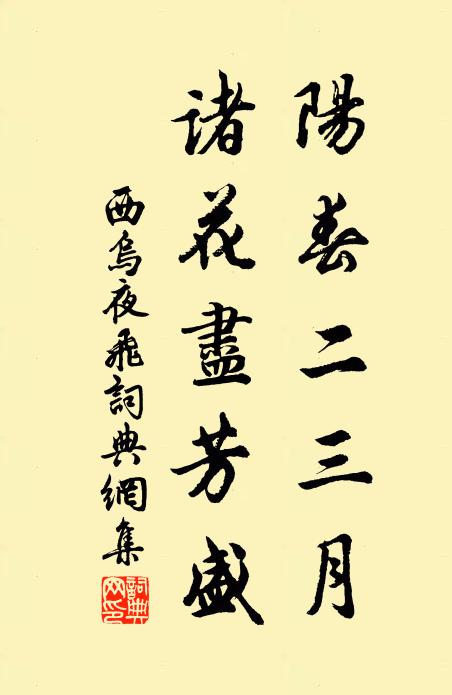 陽春二三月
諸花盡芳盛
西烏夜飛詞典網集
詞典網印